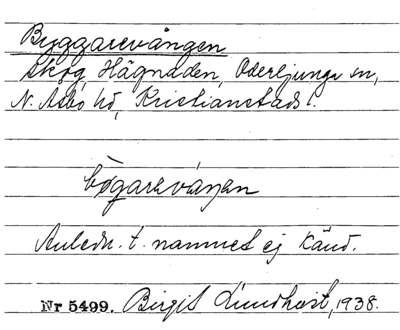 Byggarevången
Skog, Hägnaden, Oderljunga sn,
N. Åsbo hd, Kristianstads l.
bøgarevåŋan
Anledn. t. namnet ej känd.
Nr 5499. Birgit Lundkvist, 1938.